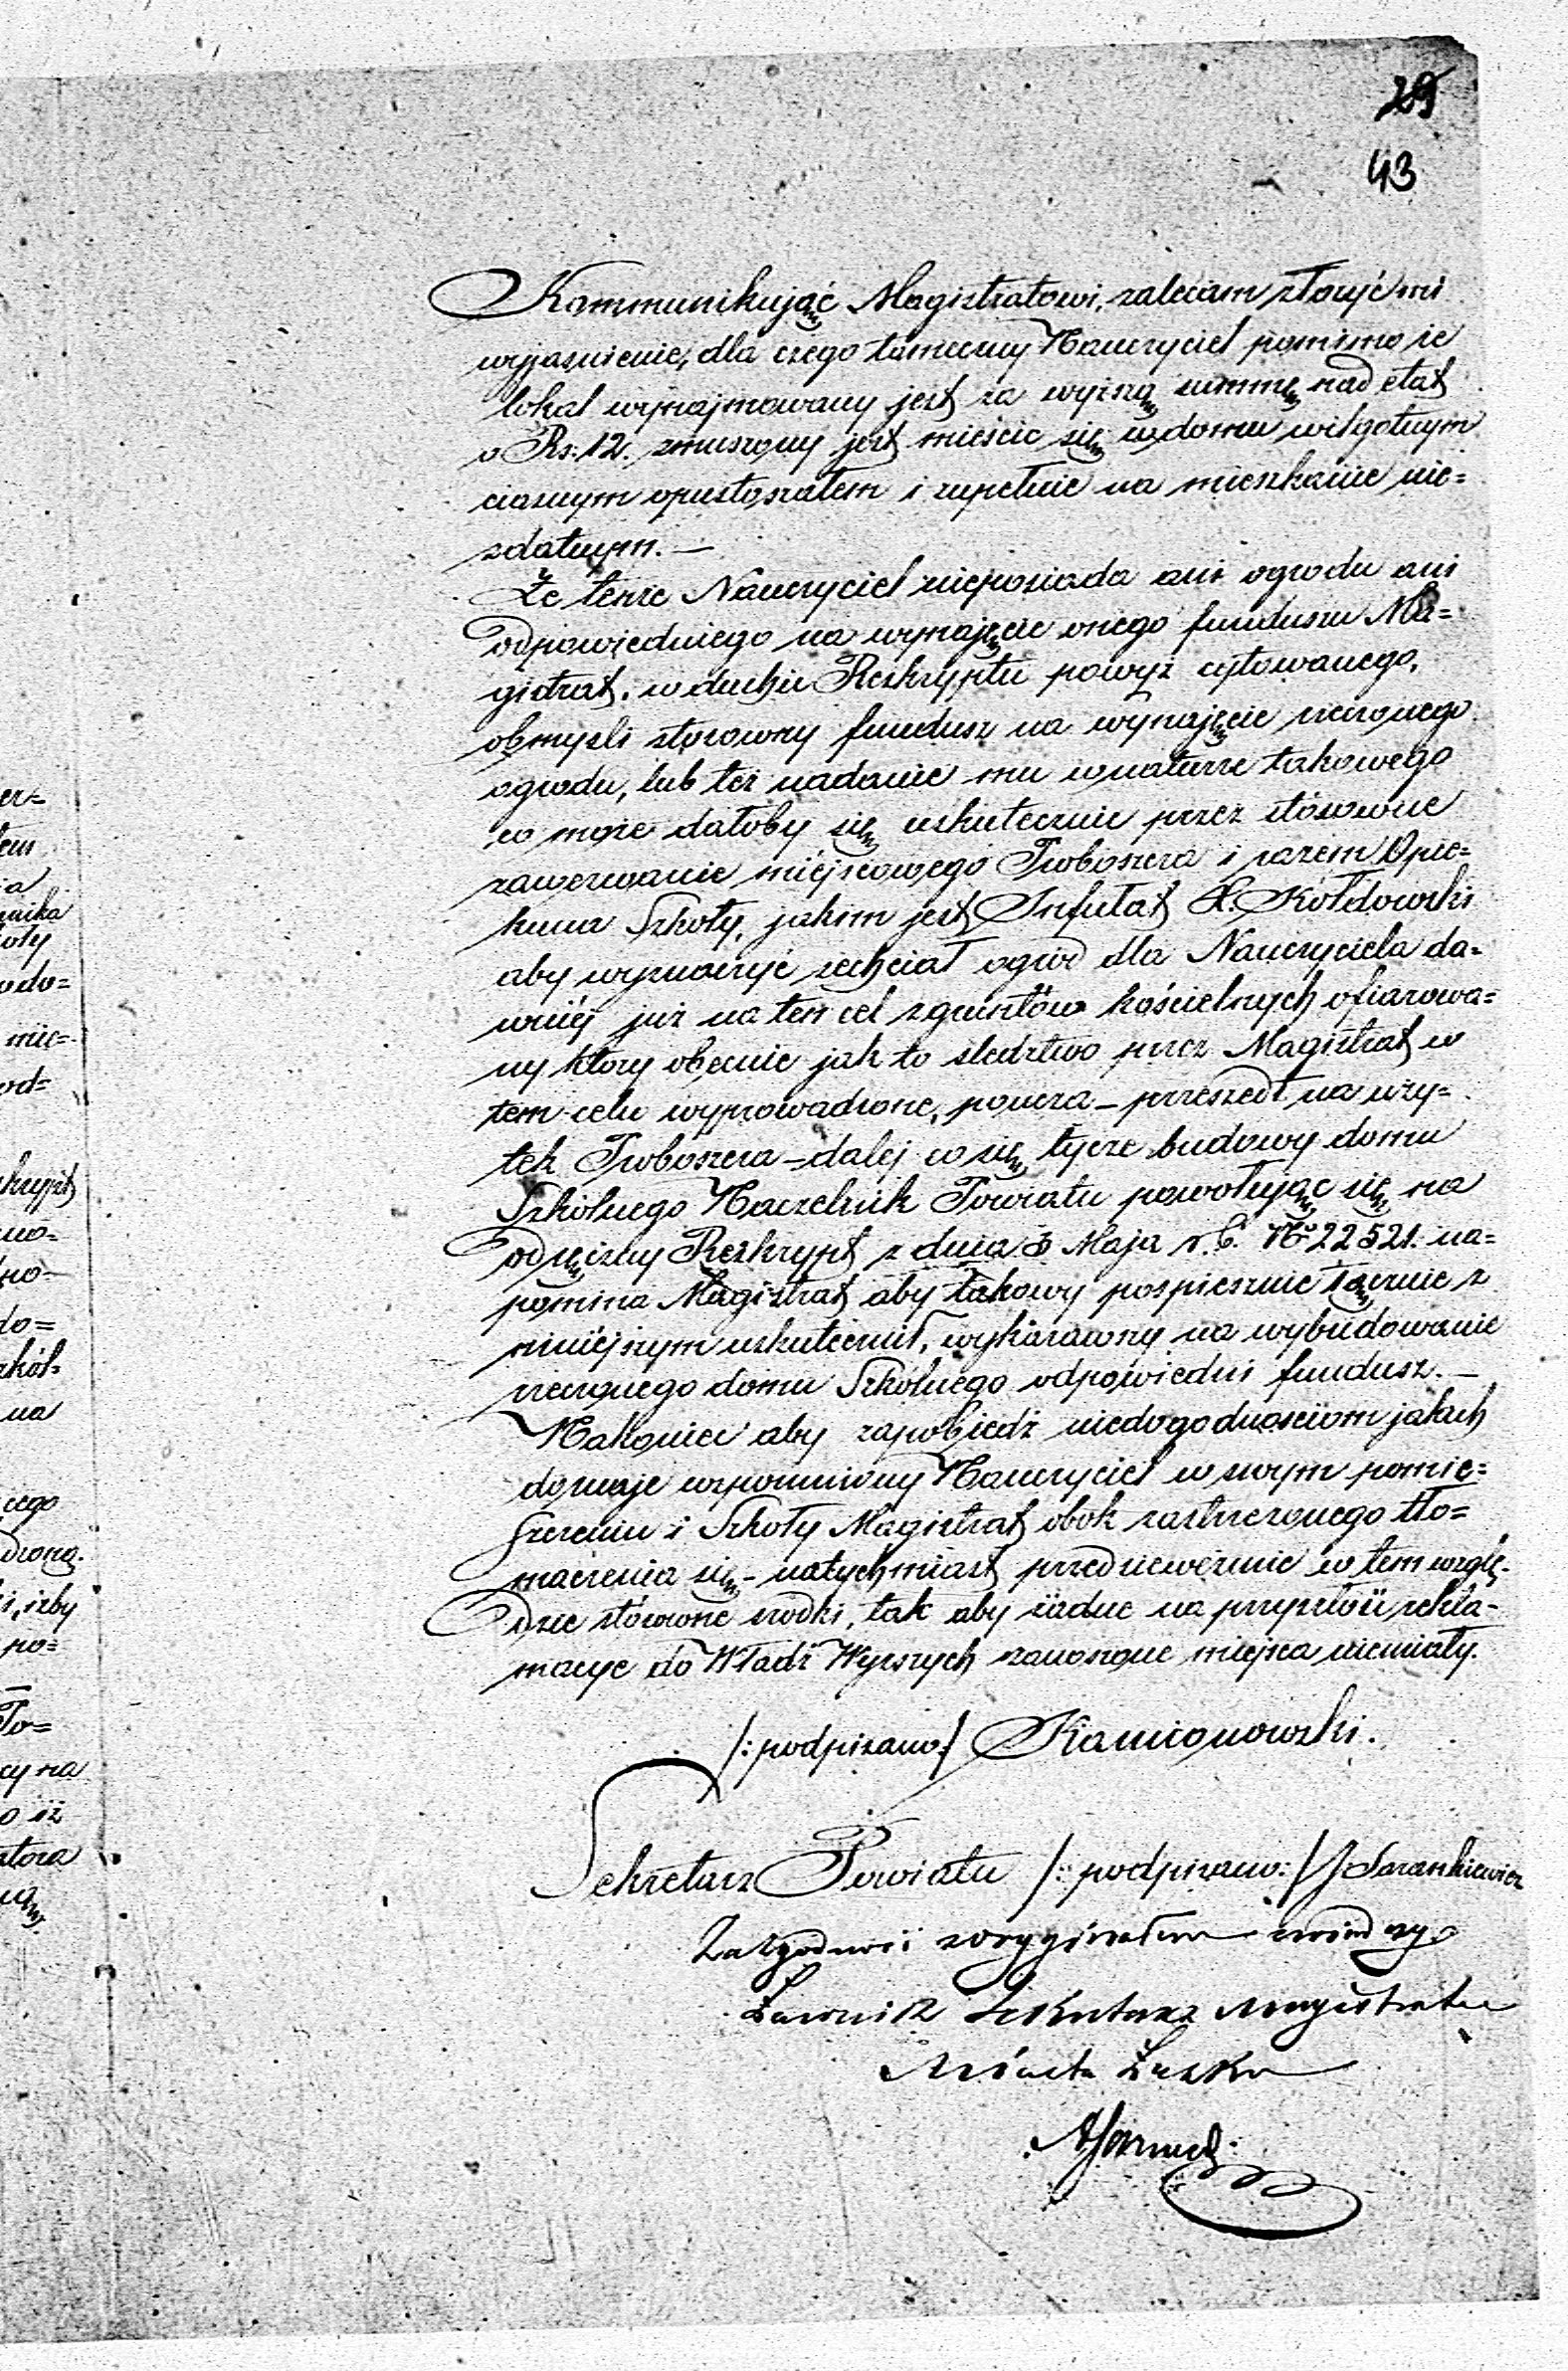 29
43
Kommunikując Magistratowi, zalecam złożyć mi
wyjaśnienie, dla czego tameczny Nauczyciel pomimo że
lokal wynajmowany jest za wyższą summę nad etat
o Rs: 12. zmuszony jest mieścić się w domu wilgotnym
ciasnym opustoszałem i zupełnie na mieszkanie nie=
zdatnym. —
Że tenże Nauczyciel nieposiada ani ogrodu ani
odpowiedniego na wynajęcie onego funduszu Ma=
gistrat, w duchu Reskryptu powyż cytowanego,
obmyśli stosowny fundusz na wynajęcie rzeczonego
ogrodu, lub też nadanie mu w naturze takowego
co może dałoby się uskutecznić przez stósowne
zawezwanie miejscowego Proboszcza i razem Opie=
kuna Szkoły, jakim jest Infułat X. Kołdowski
aby wyznaczyć zechciał ogród dla Nauczyciela da=
wniéj już na ten cel z gruntów kościelnych ofiarowa=
ny który obecnie jak to śledztwo przez Magistrat w
tem celu wyprowadzone, poucza – przeszedł na uży=
tek Proboszcza – dalej co się tycze budowy domu
Szkolnego Naczelnik Powiatu powołując się na
odręczny Reskrypt z dnia 3 Maja r. b. No 22521. na=
pomina Magistrat aby takowy pospiesznie łącznie z
niniéjszym uskutecznił, wykazawszy na wybudowanie
rzeczonego domu Szkólnego odpowiedni fundusz. —
Nakoniec aby zapobiedz niedogodnościom jakich
doznaje wspomniony Nauczyciel w swym pomie=
szczeniu i Szkoły Magistrat obok zastrzeżonego tło=
maczenia się – natychmiast przedsieweźmie w tem wzglę=
dzie stósowne środki, tak aby żadne na przyszłość rekla=
macye do Władz Wyższych zanoszone miejsca niemiały.
/: podpisano :/ Kamionowski.
Sekretarz Powiatu /: podpisano: / J Sarankiewicz
Za zgodność z oryginałem świadczy
Ławnik Sekretarz Magistratu
Miasta Łaska
er=
ia
oły
odo=
nie=
od=
skrypt
no=
po=
do=
zkól=
na
cego
, izby
po=
Po=
cy na
o iż
atora